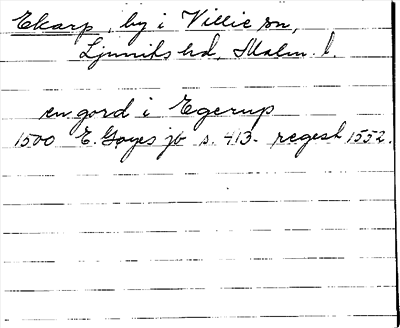 Ekarp, by i Villie sn,
Ljunits hd, Malm. l.
en gord i Egerup
1500 E. Goyes jb s. 413. regest 1552.